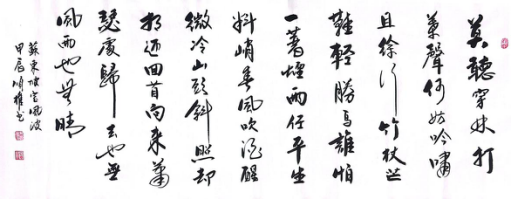 莫聽穿林打
葉聲何妨吟嘯
且徐行竹杖芒
鞋輕勝馬誰怕
一蓑煙雨任平生
料峭春風吹酒醒
微冷山頭斜照却
相迎回首向來蕭
瑟處歸去也無
風雨也無晴
蘇東坡定風波
甲辰書